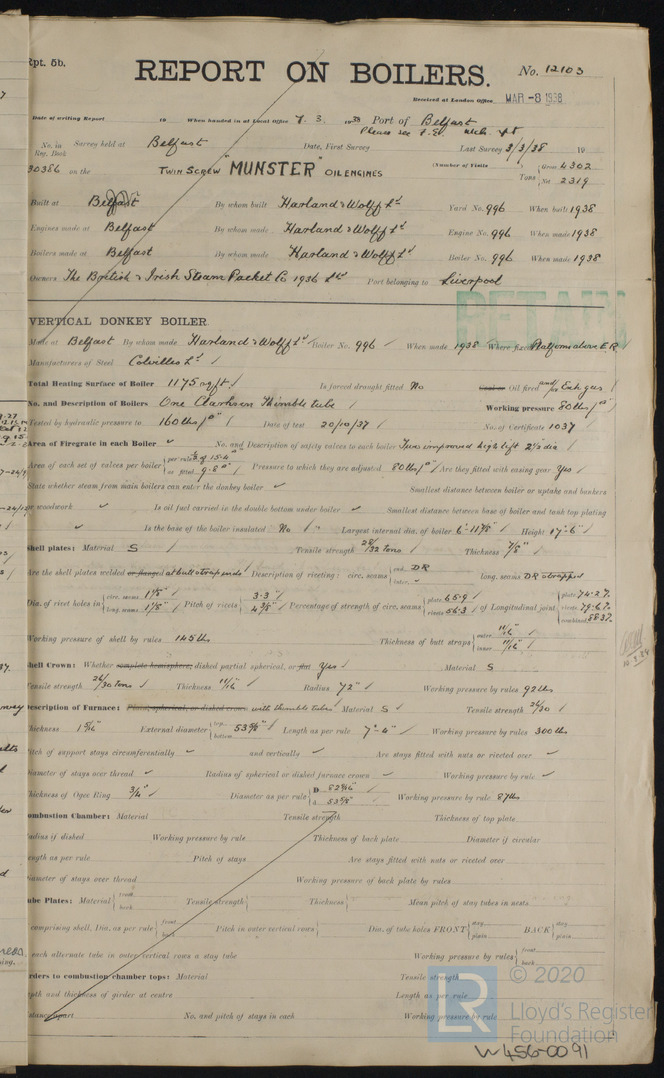 Rpt. 5b.
REPORT ON BOILERS.
No. 12103
Received at London Office MAR -8 1938
Date of writing Report 19 When handed in at Local Office 7. 3. 1938 Port of Belfast
Please see F.E. Mch. rpt
No. in Reg. Book Survey held at Belfast Date, First Survey Last Survey 3/3/38 19
30386 on the TWIN SCREW "MUNSTER" OIL ENGINES (Number of Visits ) Tons Gross 4302 Net 2319
Built at Belfast By whom built Harland & Wolff Ld Yard No. 996 When built 1938
Engines made at Belfast By whom made Harland & Wolff Ld Engine No. 996 When made 1938
Boilers made at Belfast By whom made Harland & Wolff Ld Boiler No. 996 When made 1938
Owners The British & Irish Steam Packet Co 1936 Ltd Port belonging to Liverpool
RETAIN
VERTICAL DONKEY BOILER
Made at Belfast By whom made Harland & Wolff Ld Boiler No. 996 When made 1938 Where fixed Platform above E.R.
Manufacturers of Steel Colvilles Ld
Total Heating Surface of Boiler 1175 sq ft. Is forced draught fitted No Coal or Oil fired and/or Exh. gas
No. and Description of Boilers One Clarkson Thimble tube Working pressure 80 lbs/□"
Tested by hydraulic pressure to 160 lbs/□" Date of test 20/10/37 No. of Certificate 1037
Area of Firegrate in each Boiler ✓ No. and Description of safety valves to each boiler Two improved high lift 2½" dia
Area of each set of valves per boiler per rule 15.4 as fitted 9.8□" Pressure to which they are adjusted 80 lbs/□" Are they fitted with easing gear Yes
State whether steam from main boilers can enter the donkey boiler ✓ Smallest distance between boiler or uptake and bunkers
or woodwork ✓ Is oil fuel carried in the double bottom under boiler ✓ Smallest distance between base of boiler and tank top plating
✓ Is the base of the boiler insulated No Largest internal dia. of boiler 6'-11⅞" Height 17'-6"
Shell plates: Material S Tensile strength 28/32 tons Thickness ⅞"
Are the shell plates welded or flanged at butt strap ends Description of riveting: circ. seams end DR inter. ✓ long. seams DR strapped
Dia. of rivet holes in circ. seams 1⅛" long. seams 1⅛" Pitch of rivets 3.3" 4⅝" Percentage of strength of circ. seams plate 65.9 rivets 56.3 of Longitudinal joint plate 74.2% rivets 79.6% combined 88.3%
Working pressure of shell by rules 145 lbs Thickness of butt straps outer 11/16" inner 11/16"
Shell Crown: Whether complete hemisphere, dished partial spherical, or flat Yes Material S
Tensile strength 26/30 tons Thickness 11/16" Radius 72" Working pressure by rules 92 lbs
Description of Furnace: Plain, spherical, or dished crown with thimble tubes Material S Tensile strength 26/30
Thickness 1 5/16" External diameter top bottom 53⅝" Length as per rule 7'-4" Working pressure by rules 300 lbs
Pitch of support stays circumferentially ✓ and vertically ✓ Are stays fitted with nuts or riveted over ✓
Diameter of stays over thread ✓ Radius of spherical or dished furnace crown ✓ Working pressure by rule ✓
Thickness of Ogee Ring ¾" Diameter as per rule D 82¾" d 53⅝" Working pressure by rule 87 lbs
Combustion Chamber: Material Tensile strength Thickness of top plate
Radius if dished Working pressure by rule Thickness of back plate Diameter if circular
Length as per rule Pitch of stays Are stays fitted with nuts or riveted over
Diameter of stays over thread Working pressure of back plate by rules
Tube Plates: Material front back Tensile strength Thickness Mean pitch of stay tubes in nests
comprising shell, Dia. as per rule front back Pitch in outer vertical rows Dia. of tube holes FRONT stay plain BACK stay plain
each alternate tube in outer vertical rows a stay tube Working pressure by rules front back
Girders to combustion chamber tops: Material Tensile strength
Depth and thickness of girder at centre Length as per rule
Distance apart No. and pitch of stays in each Working pressure by rule
LR © 2020
Lloyd's Register
Foundation
W456-0091